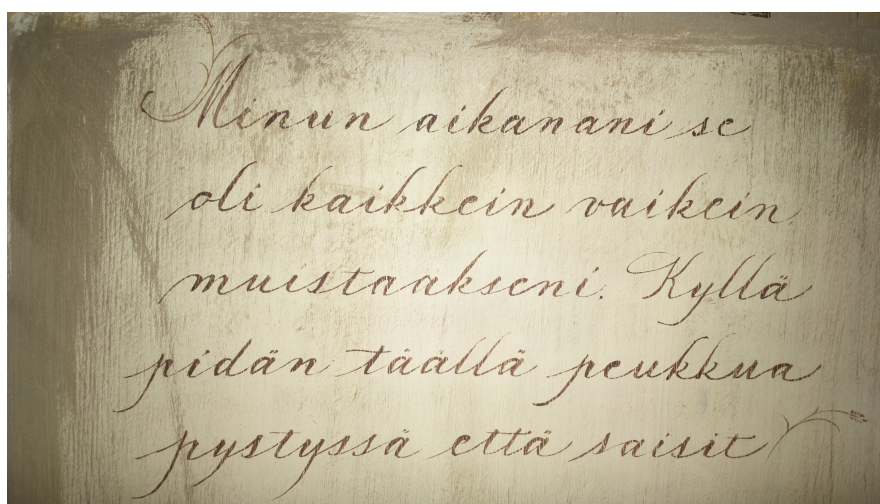 Minun aikanani se
oli kaikkein vaikein
muistaakseni. Kyllä
pidän täällä peukkua
pystyssä että saisit